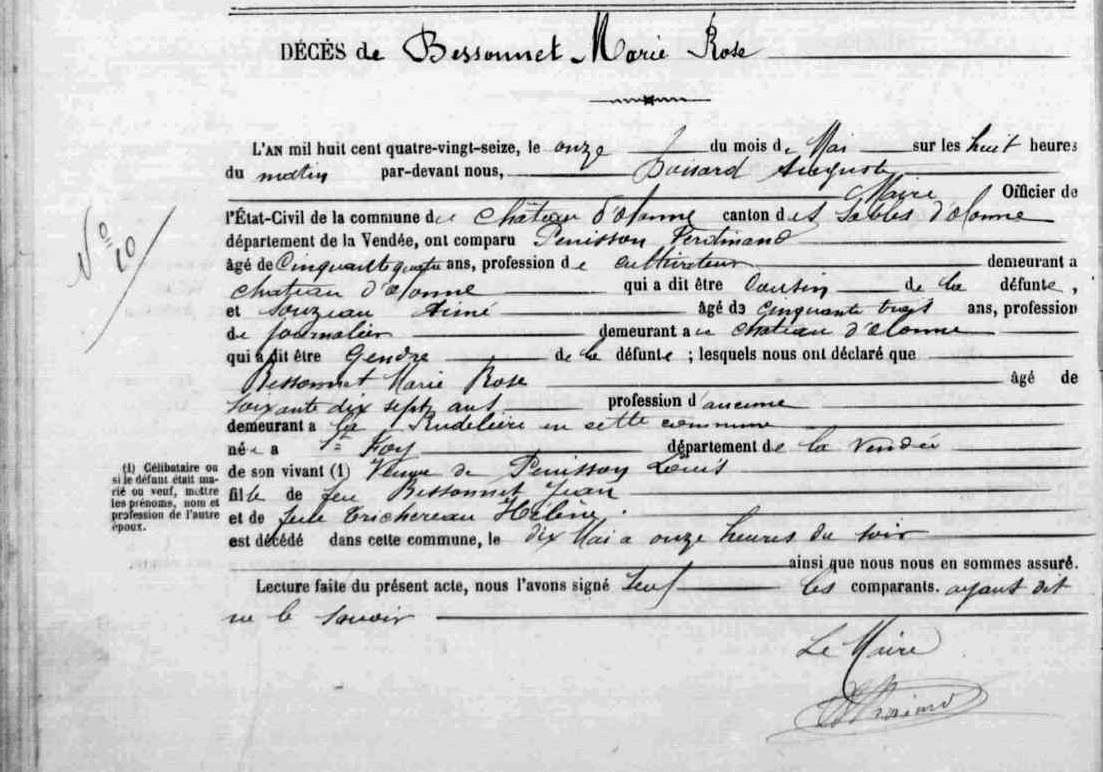 DÉCÈS de Bessonnet Marie Rose
L'AN mil huit cent quatre-vingt-seize, le onze du mois de Mai sur les huit heures
du matin par-devant nous, Auguste
Maire Officier de
l'État-Civil de la commune de Château d'olonne canton des Sables d'olonne
département de la Vendée, ont comparu Penisson Ferdinand
âgé de Cinquante quatre ans, profession de cultivateur demeurant a
chateau d'olonne qui a dit être Cousin de la défunte,
et Souzeau Aimé âgé de cinquante trois ans, profession
de journalier demeurant a u chateau d'olonne
qui a dit être Gendre de la défunte ; lesquels nous ont déclaré que
Bessonnet Marie Rose âgé de
soixante dix sept ans profession d'aucune
demeurant a la Rudelière en cette commune
née a Ste Foy département de la Vendée
de son vivant (1) Veuve de Penisson Louis
fille de feu Bessonnet Jean
et de feue Trichereau Hélène.
est décédé dans cette commune, le dix Mai a onze heures du soir
ainsi que nous nous en sommes assuré.
Lecture faite du présent acte, nous l'avons signé seul les comparants. ayant dit
ne le savoir
Le Maire
No 10
(1) Célibataire ou
si le défunt était ma-
rié ou veuf, mettre
les prénoms, nom et
profession de l'autre
époux.